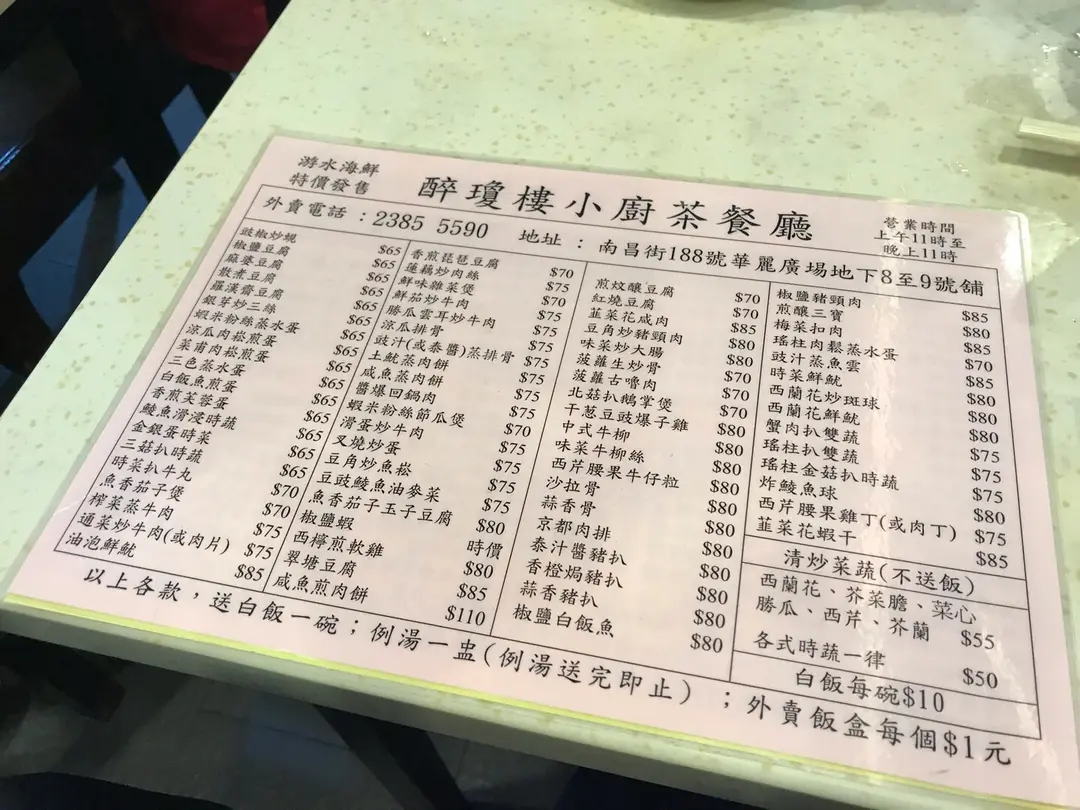 游水海鮮
特價發售
醉瓊樓小廚茶餐廳
營業時間
上午11時至
晚上11時
外賣電話：2385 5590 地址：南昌街188號華麗廣場地下8至9號舖
豉椒炒蜆 $65
椒鹽豆腐 $65
麻婆豆腐 $65
散煮豆腐 $65
羅漢齋豆腐 $65
銀芽炒三絲 $65
蝦米粉絲蒸水蛋 $65
涼瓜肉崧煎蛋 $65
菜甫肉崧煎蛋 $65
三色蒸水蛋 $65
白飯魚煎蛋 $65
香煎芙蓉蛋 $65
鯪魚滑浸時蔬 $65
金銀蛋時菜 $65
三菇扒時蔬 $65
時菜扒牛丸 $70
魚香茄子煲 $70
榨菜蒸牛肉 $75
通菜炒牛肉(或肉片) $75
油泡鮮魷 $85
香煎琵琶豆腐 $70
蓮藕炒肉絲 $75
鮮味雜菜煲 $70
鮮茄炒牛肉 $75
勝瓜雲耳炒牛肉 $75
涼瓜排骨 $75
豉汁(或泰醬)蒸排骨 $75
土魷蒸肉餅 $75
咸魚蒸肉餅 $75
醬爆回鍋肉 $75
蝦米粉絲節瓜煲 $70
滑蛋炒牛肉 $75
叉燒炒蛋 $75
豆角炒魚崧 $75
豆豉鯪魚油麥菜 $75
魚香茄子玉子豆腐 $80
椒鹽蝦 時價
西檸煎軟雞 $80
翠塘豆腐 $85
咸魚煎肉餅 $110
煎炆釀豆腐 $70
紅燒豆腐 $70
韮菜花咸肉 $85
豆角炒豬頸肉 $80
味菜炒大腸 $80
菠蘿生炒骨 $70
菠蘿古嚕肉 $70
北菇扒鵝掌煲 $80
干葱豆豉爆子雞 $80
中式牛柳 $80
味菜牛柳絲 $80
西芹腰果牛仔粒 $80
沙拉骨 $80
蒜香骨 $80
京都肉排 $80
泰汁醬豬扒 $80
香橙焗豬扒 $80
蒜香豬扒 $80
椒鹽白飯魚 $80
椒鹽豬頸肉 $85
煎釀三寶 $80
梅菜扣肉 $85
瑤柱肉鬆蒸水蛋 $70
豉汁蒸魚雲 $85
時菜鮮魷 $80
西蘭花炒斑球 $80
西蘭花鮮魷 $80
蟹肉扒雙蔬 $75
瑤柱扒雙蔬 $75
瑤柱金菇扒時蔬 $75
炸鯪魚球 $80
西芹腰果雞丁(或肉丁) $75
韮菜花蝦干 $85
清炒菜蔬(不送飯)
西蘭花、芥菜膽、菜心
勝瓜、西芹、芥蘭 $55
各式時蔬一律 $50
白飯每碗$10
以上各款，送白飯一碗；例湯一盅(例湯送完即止)；外賣飯盒每個$1元